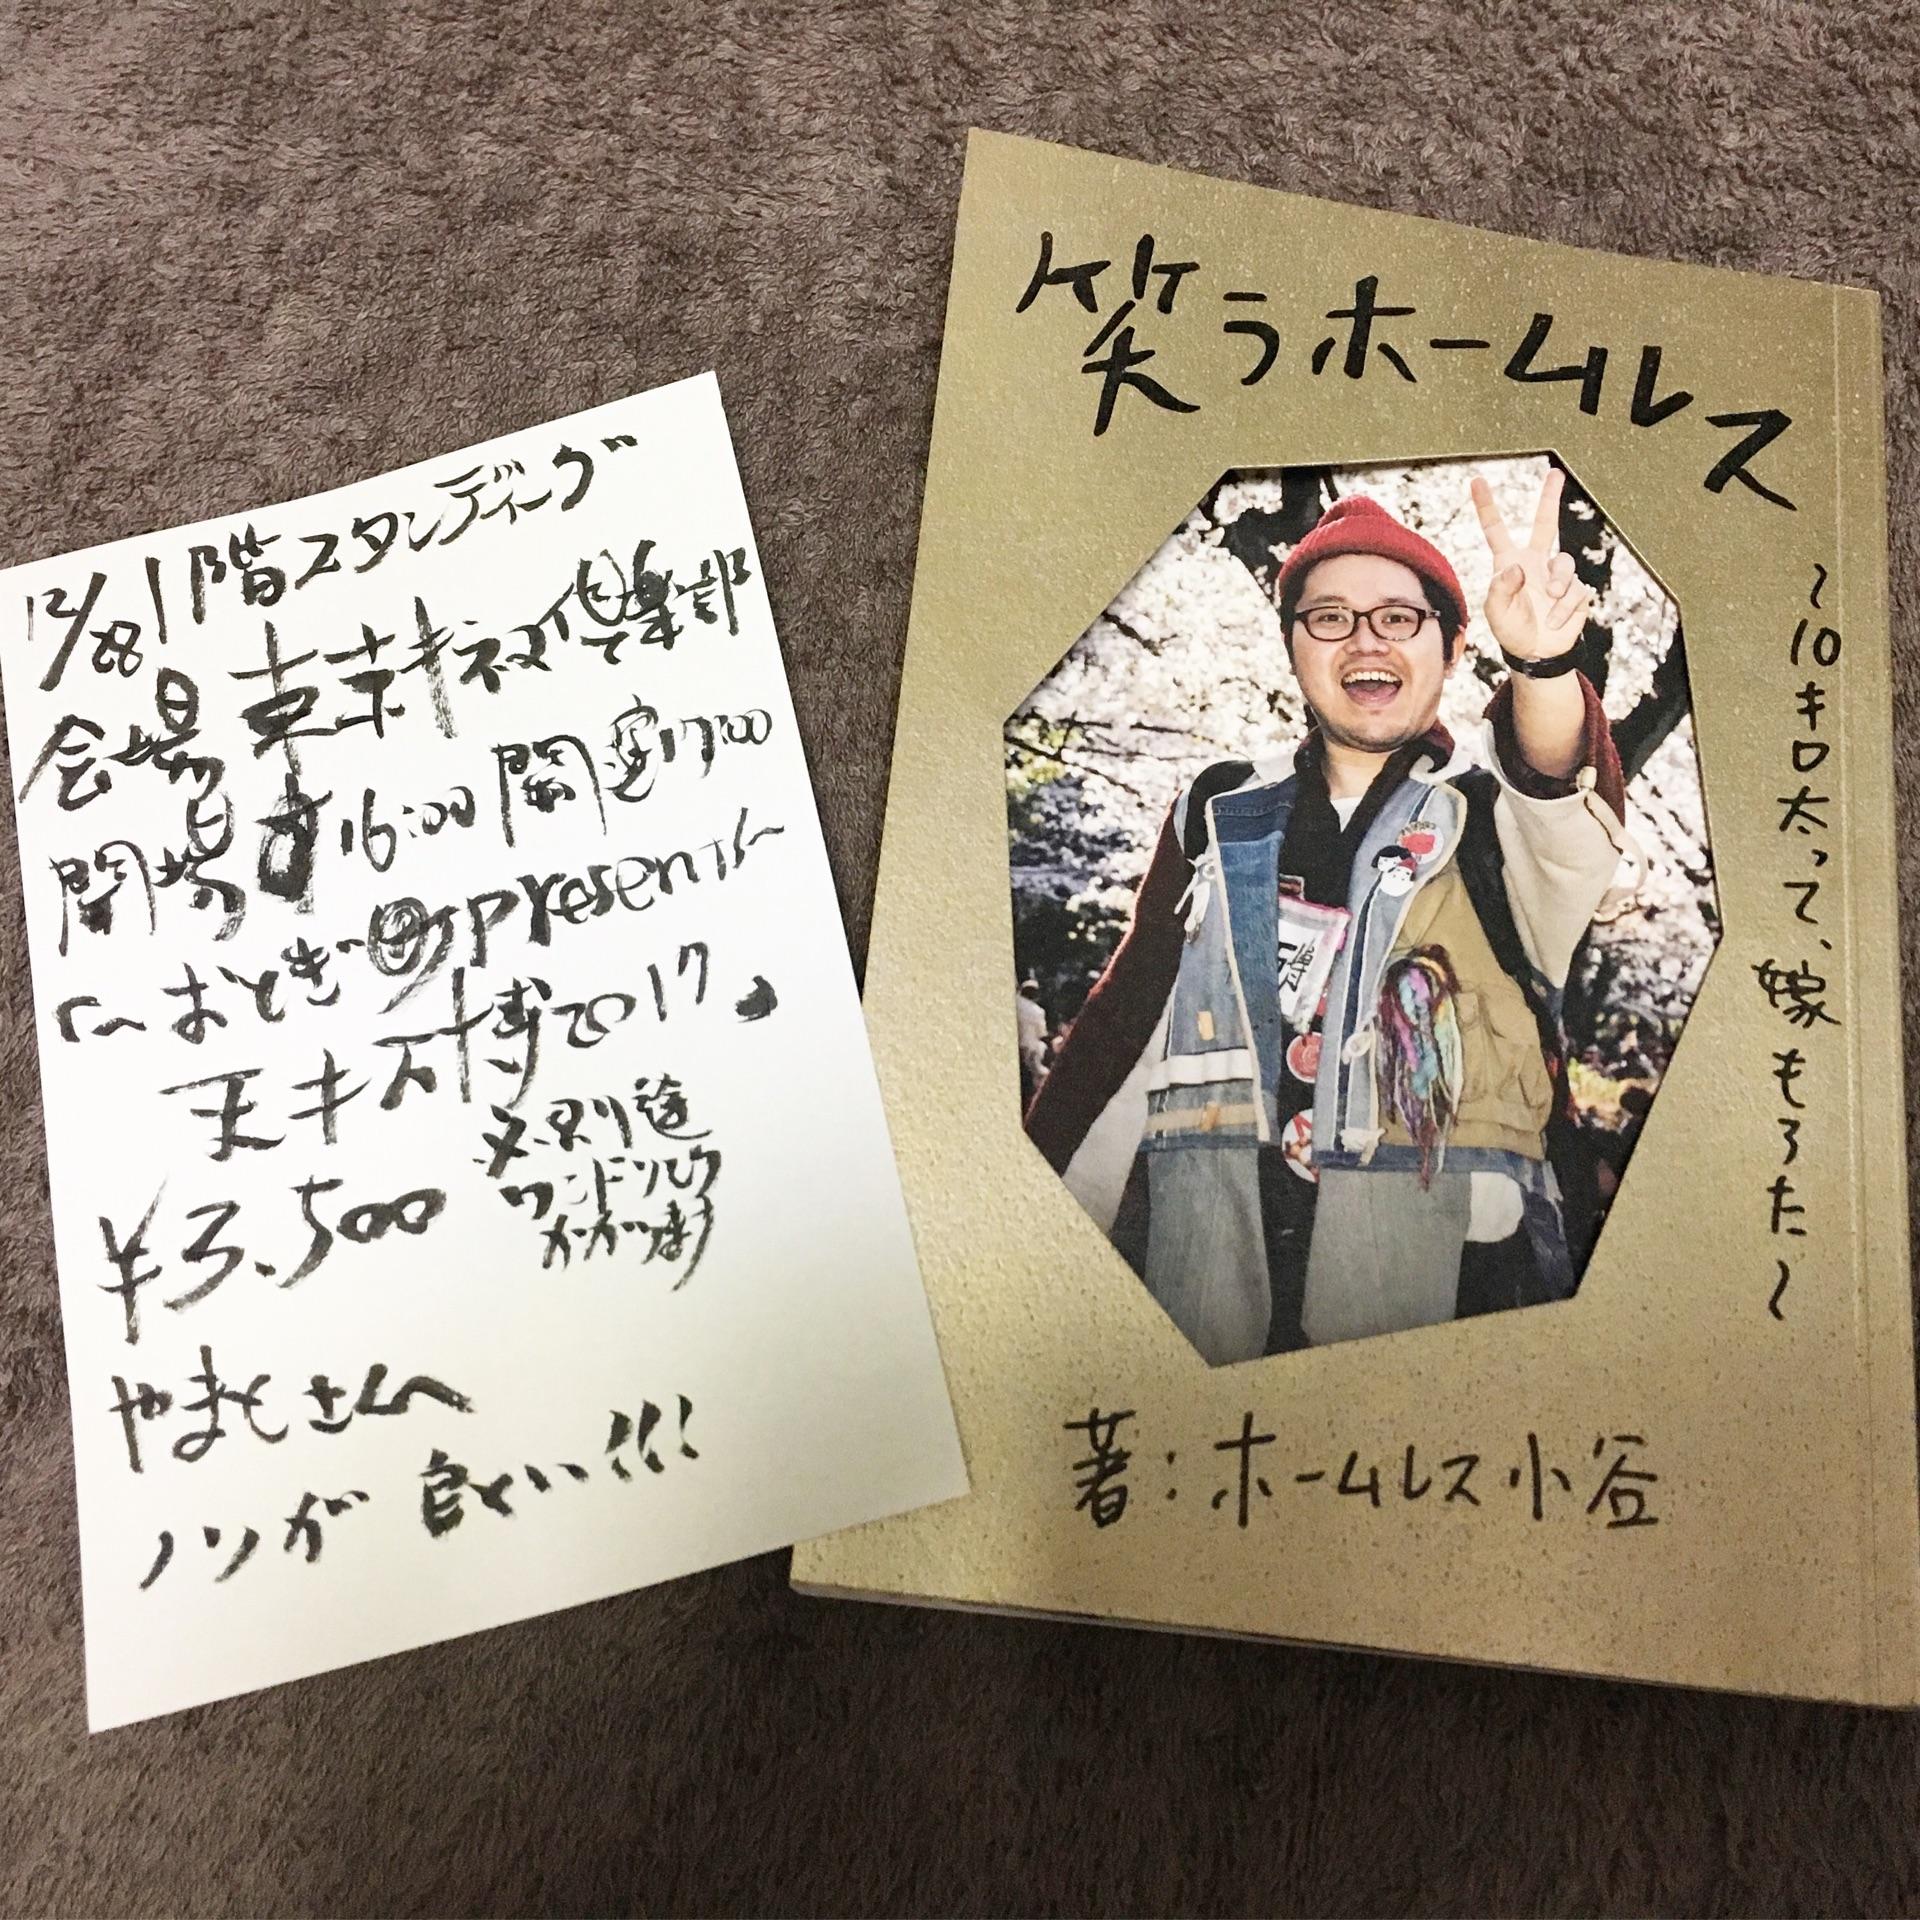 12/28 1階スタンディング
会場 東京キネマ倶楽部
開場 16:00 開宴17:00
〜おとぎ present〜
天才万博2017
¥3,500
※別途
ワンドリンク
かかります
やまもとさんへ
ノリが良い!!!
笑うホームレス
〜10キロ太って、嫁もろた〜
著：ホームレス小谷